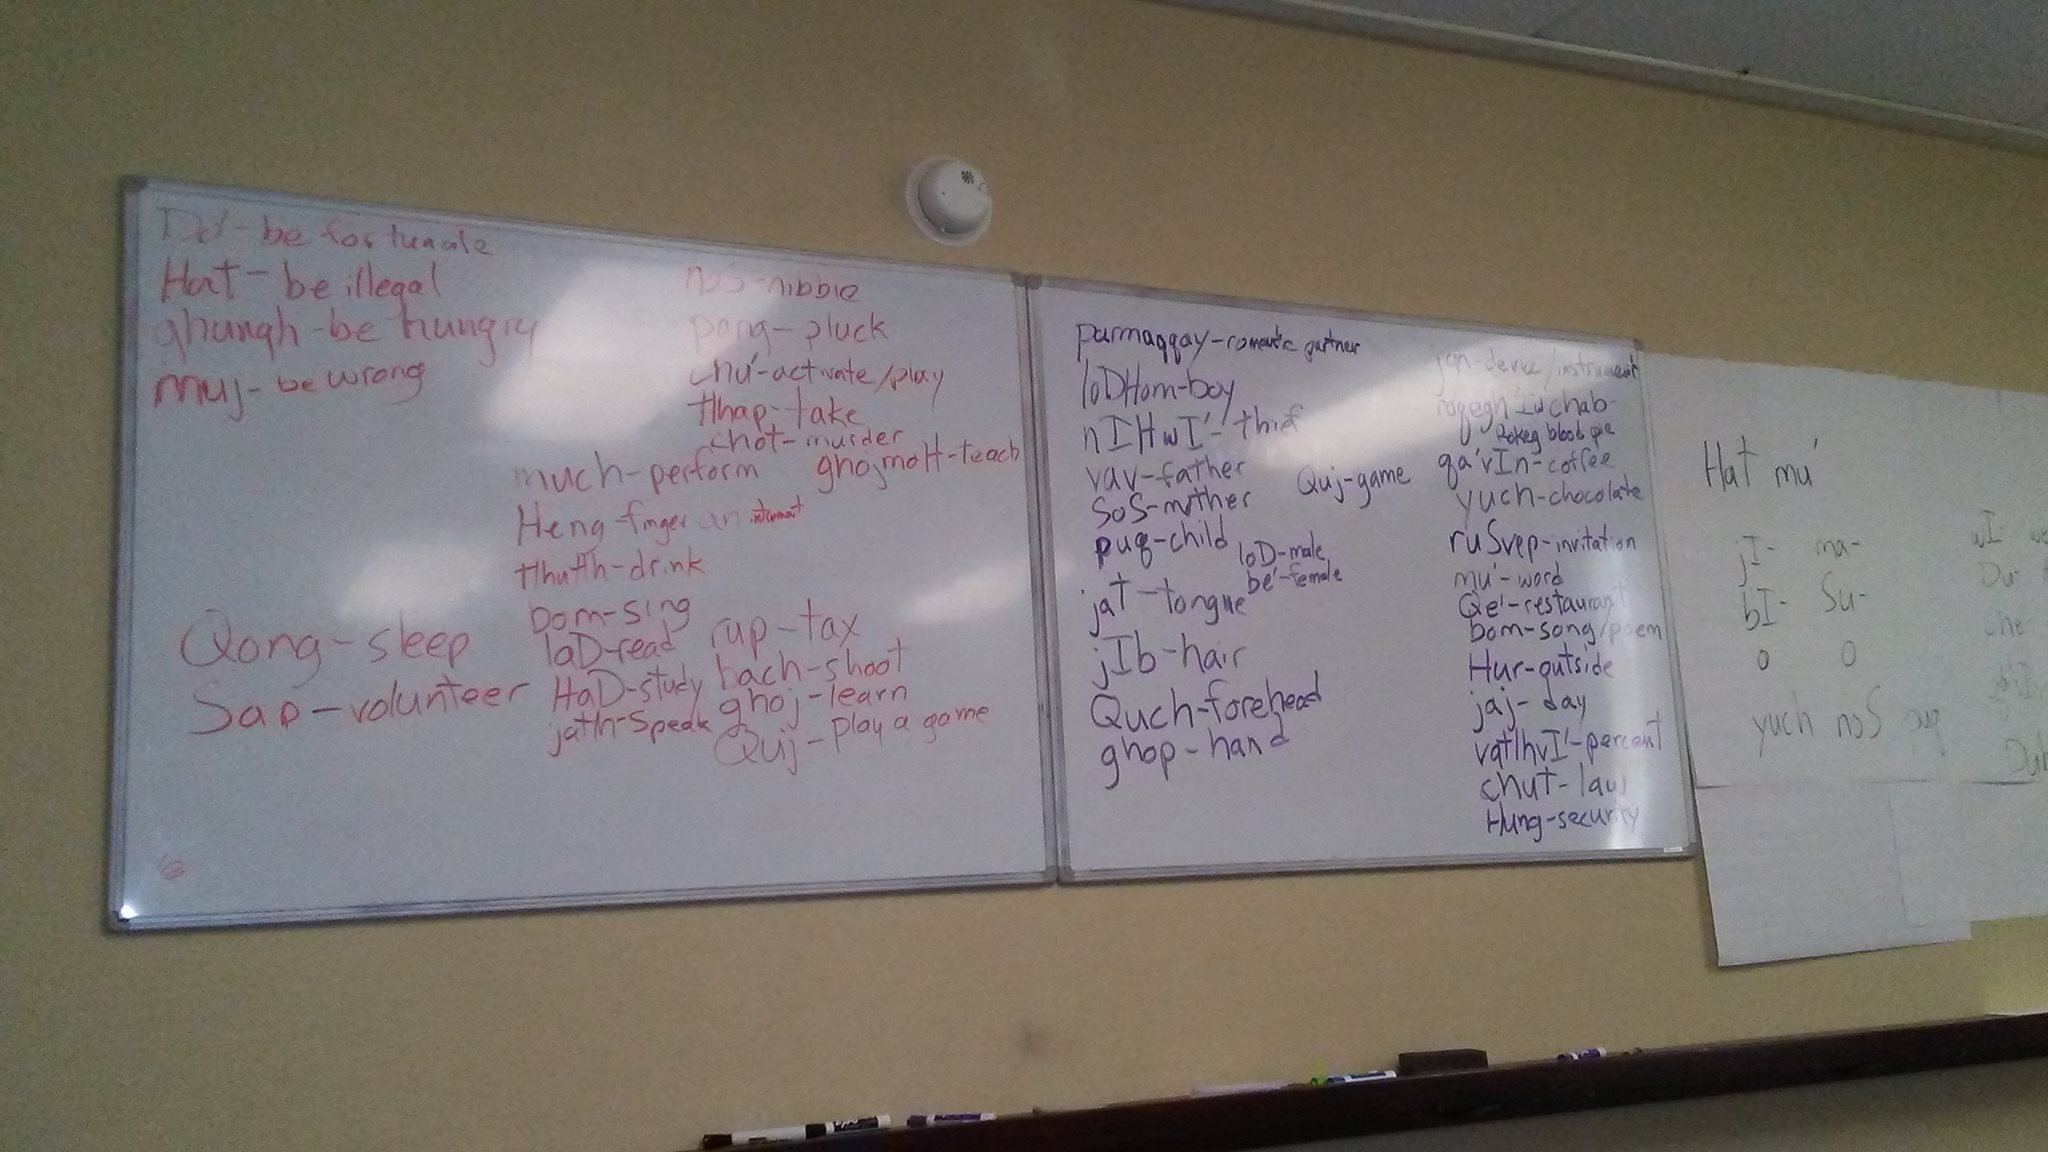 Do' - be fortunate
Hat - be illegal
ghungh - be hungry
muj - be wrong
Qong - sleep
Sap - volunteer
much - perform
Heng - finger an instrument
tlhutlh - drink
bom - sing
laD - read
HaD - study
jatlh - speak
noS - nibble
pang - pluck
chu' - activate/play
tlhap - take
chot - murder
ghojmoH - teach
rup - tax
bach - shoot
ghoj - learn
Quj - play a game
parmaqqay - romantic partner
loDHom - boy
nIHwI' - thief
vav - father
SoS - mother
puq - child
loD - male
be' - female
jat - tongue
jIb - hair
Quch - forehead
ghop - hand
Quj - game
jan - device/instrument
roqegh 'Iw chab -
Rokeg blood pie
qa'vIn - coffee
yuch - chocolate
ruSvep - invitation
mu' - word
Qe' - restaurant
bom - song/poem
Hur - outside
jaj - day
vatlhvI' - percent
chut - law
Hung - security
Hat mu'
jI- ma-
bI- Su-
0 0
yuch noS puq
wI-
Du-